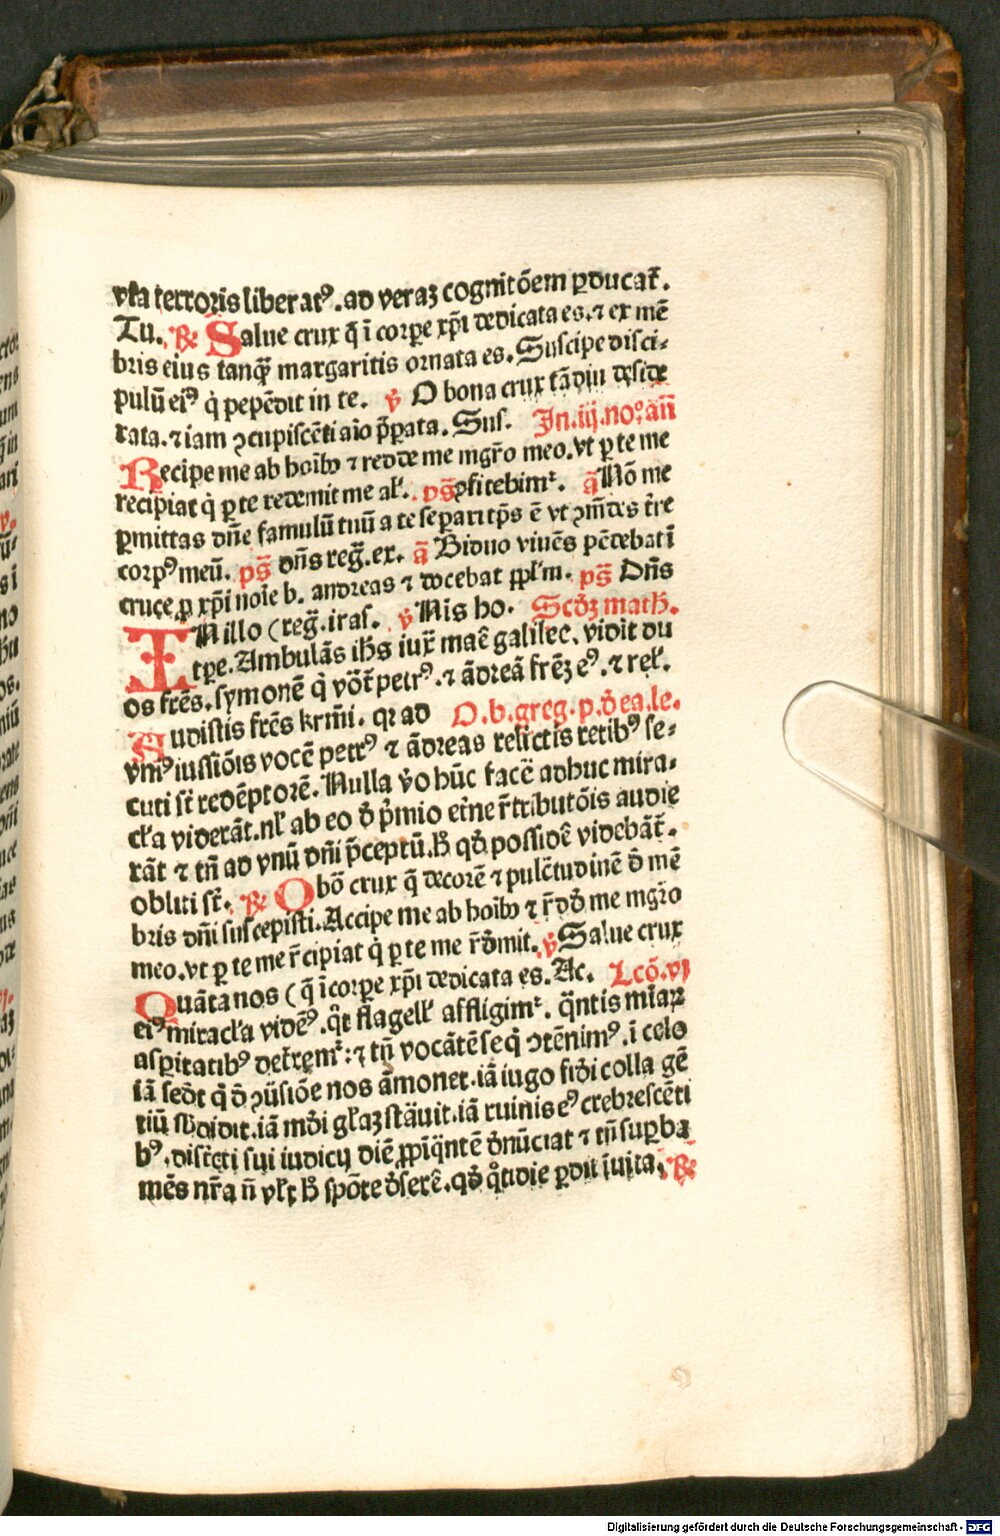 vr̄a terroris liberatꝰ. ad veraꝫ cognitōem ꝑducat̄.
Tu. ℞ Salue crux q̄ ī corꝑe xp̄i dedicata es. ⁊ ex mē
bris eius tanqꝫ̄ margaritis ornata es. Suscipe disci-
pulū eiꝰ q̇ pepēdit in te. v̇ O bona crux tādiu deside
rata. ⁊ iam ꝯcupiscēti aīo p̄ꝑata. Sus. In. iij. no. an̄
Recipe me ab hoībꝰ ⁊ redde me mgr̄o meo. vt ꝑ te me
recipiat q̇ ꝑ te redemit me al'. ps̄ ꝯfitebimr̄. ā Nō me
ꝑmittas dn̄e famulū tuū a te separari tp̄s ē vt ꝯm̄des tr̄e
corpꝰ meū. ps̄ dn̄s reḡ. ex. ā Biduo viuēs pēdebat ī
cruce ꝓ xp̄i noīe b. andreas ⁊ docebat ppl'm. ps̄ Dn̄s
reḡ. iras. v̇ Nis ho. Scd̄ꝫ math.
IN illo
tꝑe. Ambulās ih̄s iux̄ maē galilee. vidit du
os fr̄es. symonē q̇ vōt̄ petrꝰ. ⁊ ādreā fr̄eꝫ eꝰ. ⁊ rel'.
O. b. greg. p. d̄ ea. le.
Audistis fr̄es kr̄mi. qꝛ ad
vnīꝰ iussiōis vocē petrꝰ ⁊ ādreas relictis retibꝰ se-
cuti st̄ redēptorē. Nulla v̇o hūc facē adhuc mira-
cl'a viderāt. nl' ab eo d̄ p̄mio et̄ne r̄tributōis audie
rāt ⁊ tn̄ ad vnū dn̄i p̄ceptū. h̄ qd̄ possidē videbāt̄.
obliti st̄. ℞ O bō crux q̄ decorē ⁊ pulc̄tudinē d̄ mē
bris dn̄i suscepisti. Accipe me ab hoībꝰ ⁊ r̄dd̄ me mgr̄o
meo. vt ꝑ te me r̄cipiat q̇ ꝑ te me r̄dmit. v̇ Salue crux
q̄ ī corꝑe xp̄i dedicata es. Ac. Lcō. vj
Quāta nos
eiꝰ miracl'a vidēꝰ. q̄t flagell' affligimr̄. q̄ntis miaꝝ
asꝑitatibꝰ det̄remr̄: ⁊ tn̄ vocātē seq̇ ꝯtēnimꝰ. ī celo
iā sed̄t q̇ d̄ ꝯūsiōe nos āmonet. iā iugo fid̄i colla gē
tiū sb̄didit. iā md̄i gl'aꝫ st̄auit. iā ruinis eꝰ crebrescēti
bꝰ. distc̄ti sui iudicij diē ꝓpīq̄ntē d̄nūciat ⁊ tn̄ suꝑba
mēs nr̄a n̄ vl't h̄ spōte d̄serē. qd̄ q̄tidie ꝑdit īuita. ℞
Digitalisierung gefördert durch die Deutsche Forschungsgemeinschaft - DFG